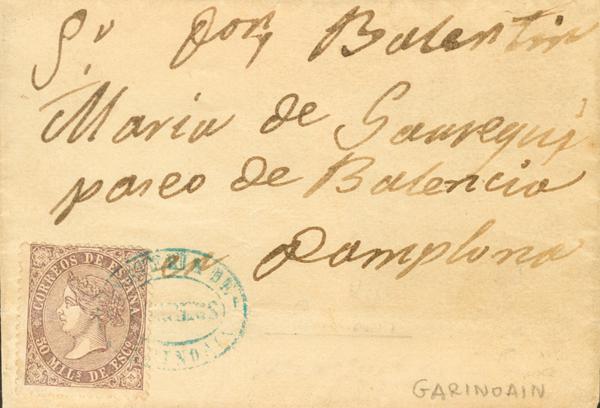 Sr Don Balentin
Maria de Jaureguj
paseo de Balencia
en Pamplona
CORREOS DE ESPAÑA
50 MILS. DE ESCO.
GARINOAIN